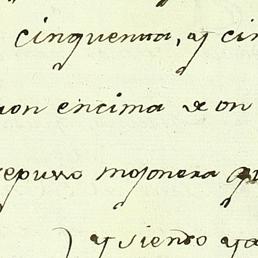 cinquenta, y cin
on encima de on
repuso mojonera qu
) y siendo ya